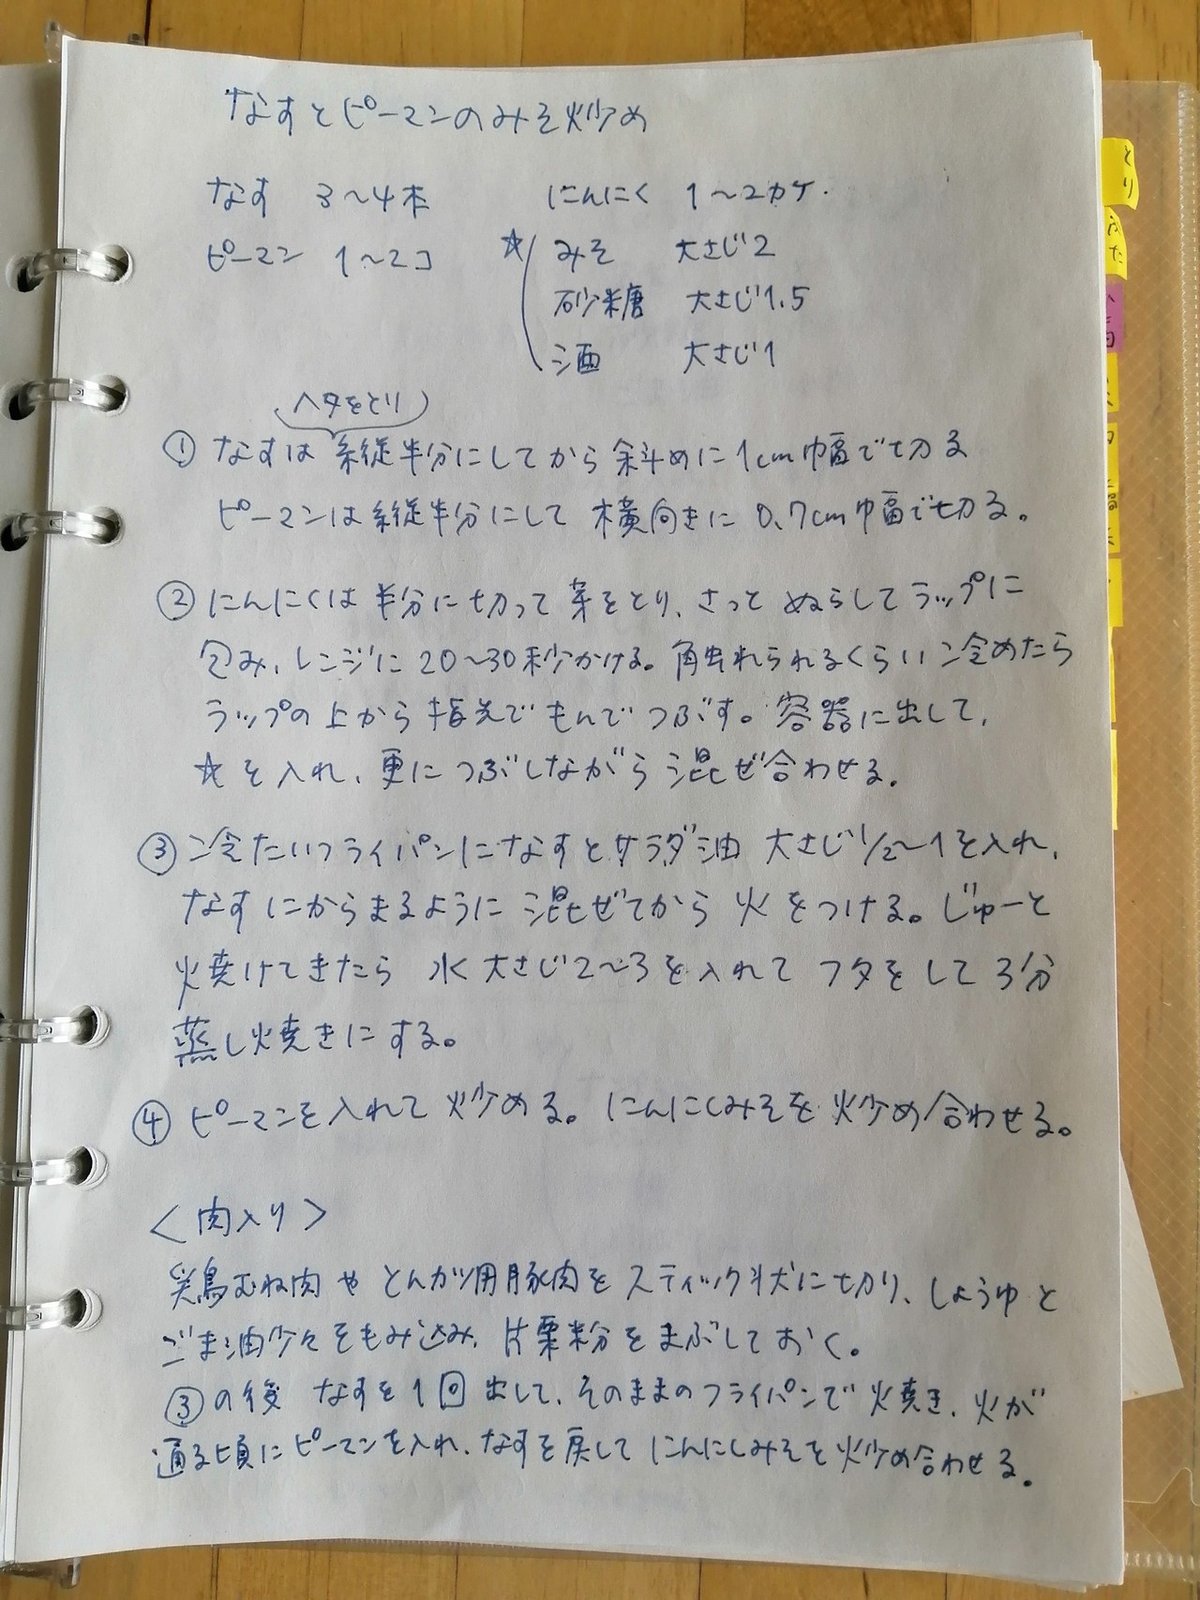 なすとピーマンのみそ炒め
なす 3〜4本
ピーマン 1〜2コ
にんにく 1〜2カケ.
☆ みそ 大さじ2
砂糖 大さじ1.5
酒 大さじ1
ヘタをとり
① なすは縦半分にしてから斜めに1cm巾幅で切る
ピーマンは縦半分にして 横向きに 0.7cm巾幅で切る。
② にんにくは 半分に切って 芽をとり、さっと ぬらしてラップに
包み、レンジに20〜30秒かける。触れられるくらい冷めたら
ラップの上から指先でもんでつぶす。容器に出して、
☆を入れ、更につぶしながら混ぜ合わせる。
③ 冷たいフライパンになすとサラダ油 大さじ1/2〜1を入れ、
なすにからまるように混ぜてから 火をつける。じゅーと
焼けてきたら 水 大さじ2〜3を入れて フタをして 3分
蒸し焼きにする。
④ ピーマンを入れて 炒める。にんにくみそを炒め合わせる。
<肉入り>
鶏むね肉や とんカツ用豚肉を スティック状に切り、しょうゆと
ごま油少々をもみ込み、片栗粉をまぶしておく。
③の後 なすを1回出して、そのままのフライパンで焼き、火が
通る頃にピーマンを入れ、なすを戻して にんにくみそを炒め合わせる。
とり
ぶた